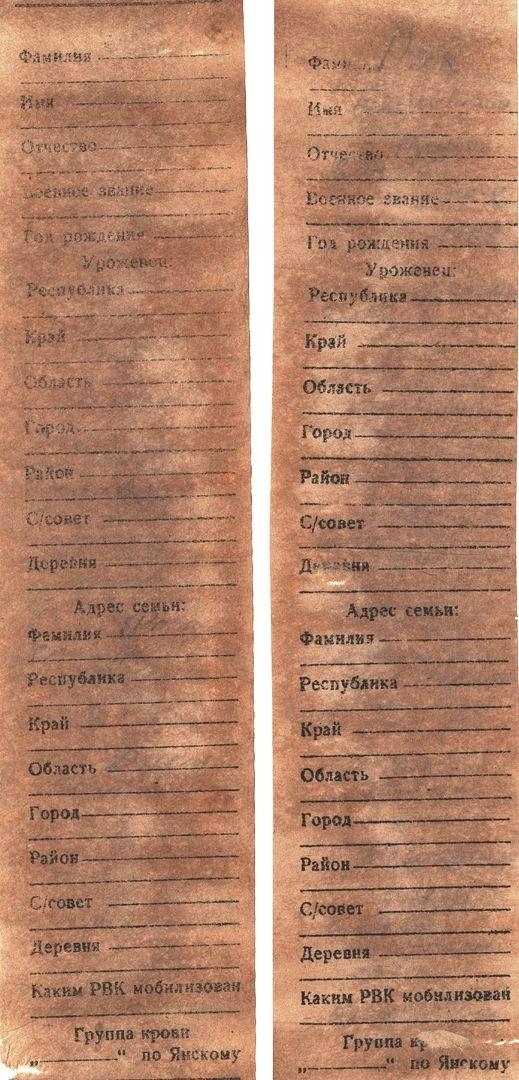 Фамилия
Имя
Отчество
Военное звание
Год рождения
Уроженец:
Республика
Край
Область
Город
Район
С/совет
Деревня
Адрес семьи:
Фамилия
Республика
Край
Область
Город
Район
С/совет
Деревня
Каким РВК мобилизован
Группа крови
„ “ по Янскому
Имя
Отчество
Военное звание
Год рождения
Уроженец:
Республика
Край
Область
Город
Район
С/совет
Деревня
Адрес семьи:
Фамилия
Республика
Край
Область
Город
Район
С/совет
Деревня
Каким РВК мобилизован
Группа
„ “ по Янскому